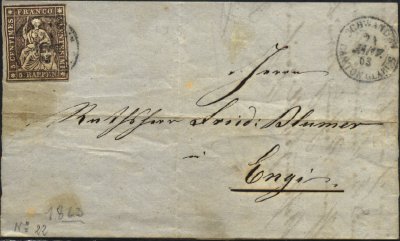 FRANCO
5 CENTIMES
5 RAPPEN
SCHWANDEN
CANTON GLARUS
Herrn
Rathsherr Frid: Blumer
in
Engi
1863
No 22